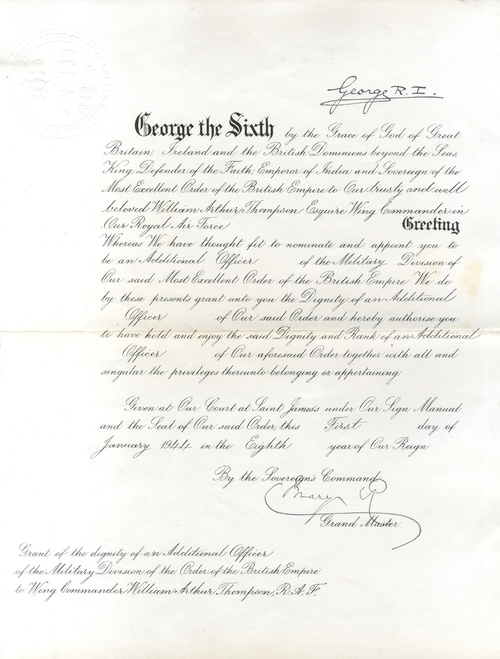 George R.I.
George the Sixth by the Grace of God of Great
Britain, Ireland and the British Dominions beyond the Seas,
King, Defender of the Faith, Emperor of India and Sovereign of the
Most Excellent Order of the British Empire to Our trusty and well
beloved William Arthur Thompson Esquire Wing Commander in
Our Royal Air Force Greeting
Whereas We have thought fit to nominate and appoint you to
be an Additional Officer of the Military Division of
Our said Most Excellent Order of the British Empire We do
by these presents grant unto you the Dignity of an Additional
Officer of Our said Order and hereby authorise you
to have hold and enjoy the said Dignity and Rank of an Additional
Officer of Our aforesaid Order together with all and
singular the privileges thereunto belonging or appertaining.
Given at Our Court at Saint James's under Our Sign Manual
and the Seal of Our said Order, this First day of
January 1944 in the Eighth year of Our Reign
By the Sovereign's Command,
Mary R
Grand Master
Grant of the dignity of an Additional Officer
of the Military Division of the Order of the British Empire
to Wing Commander William Arthur Thompson, R.A.F.